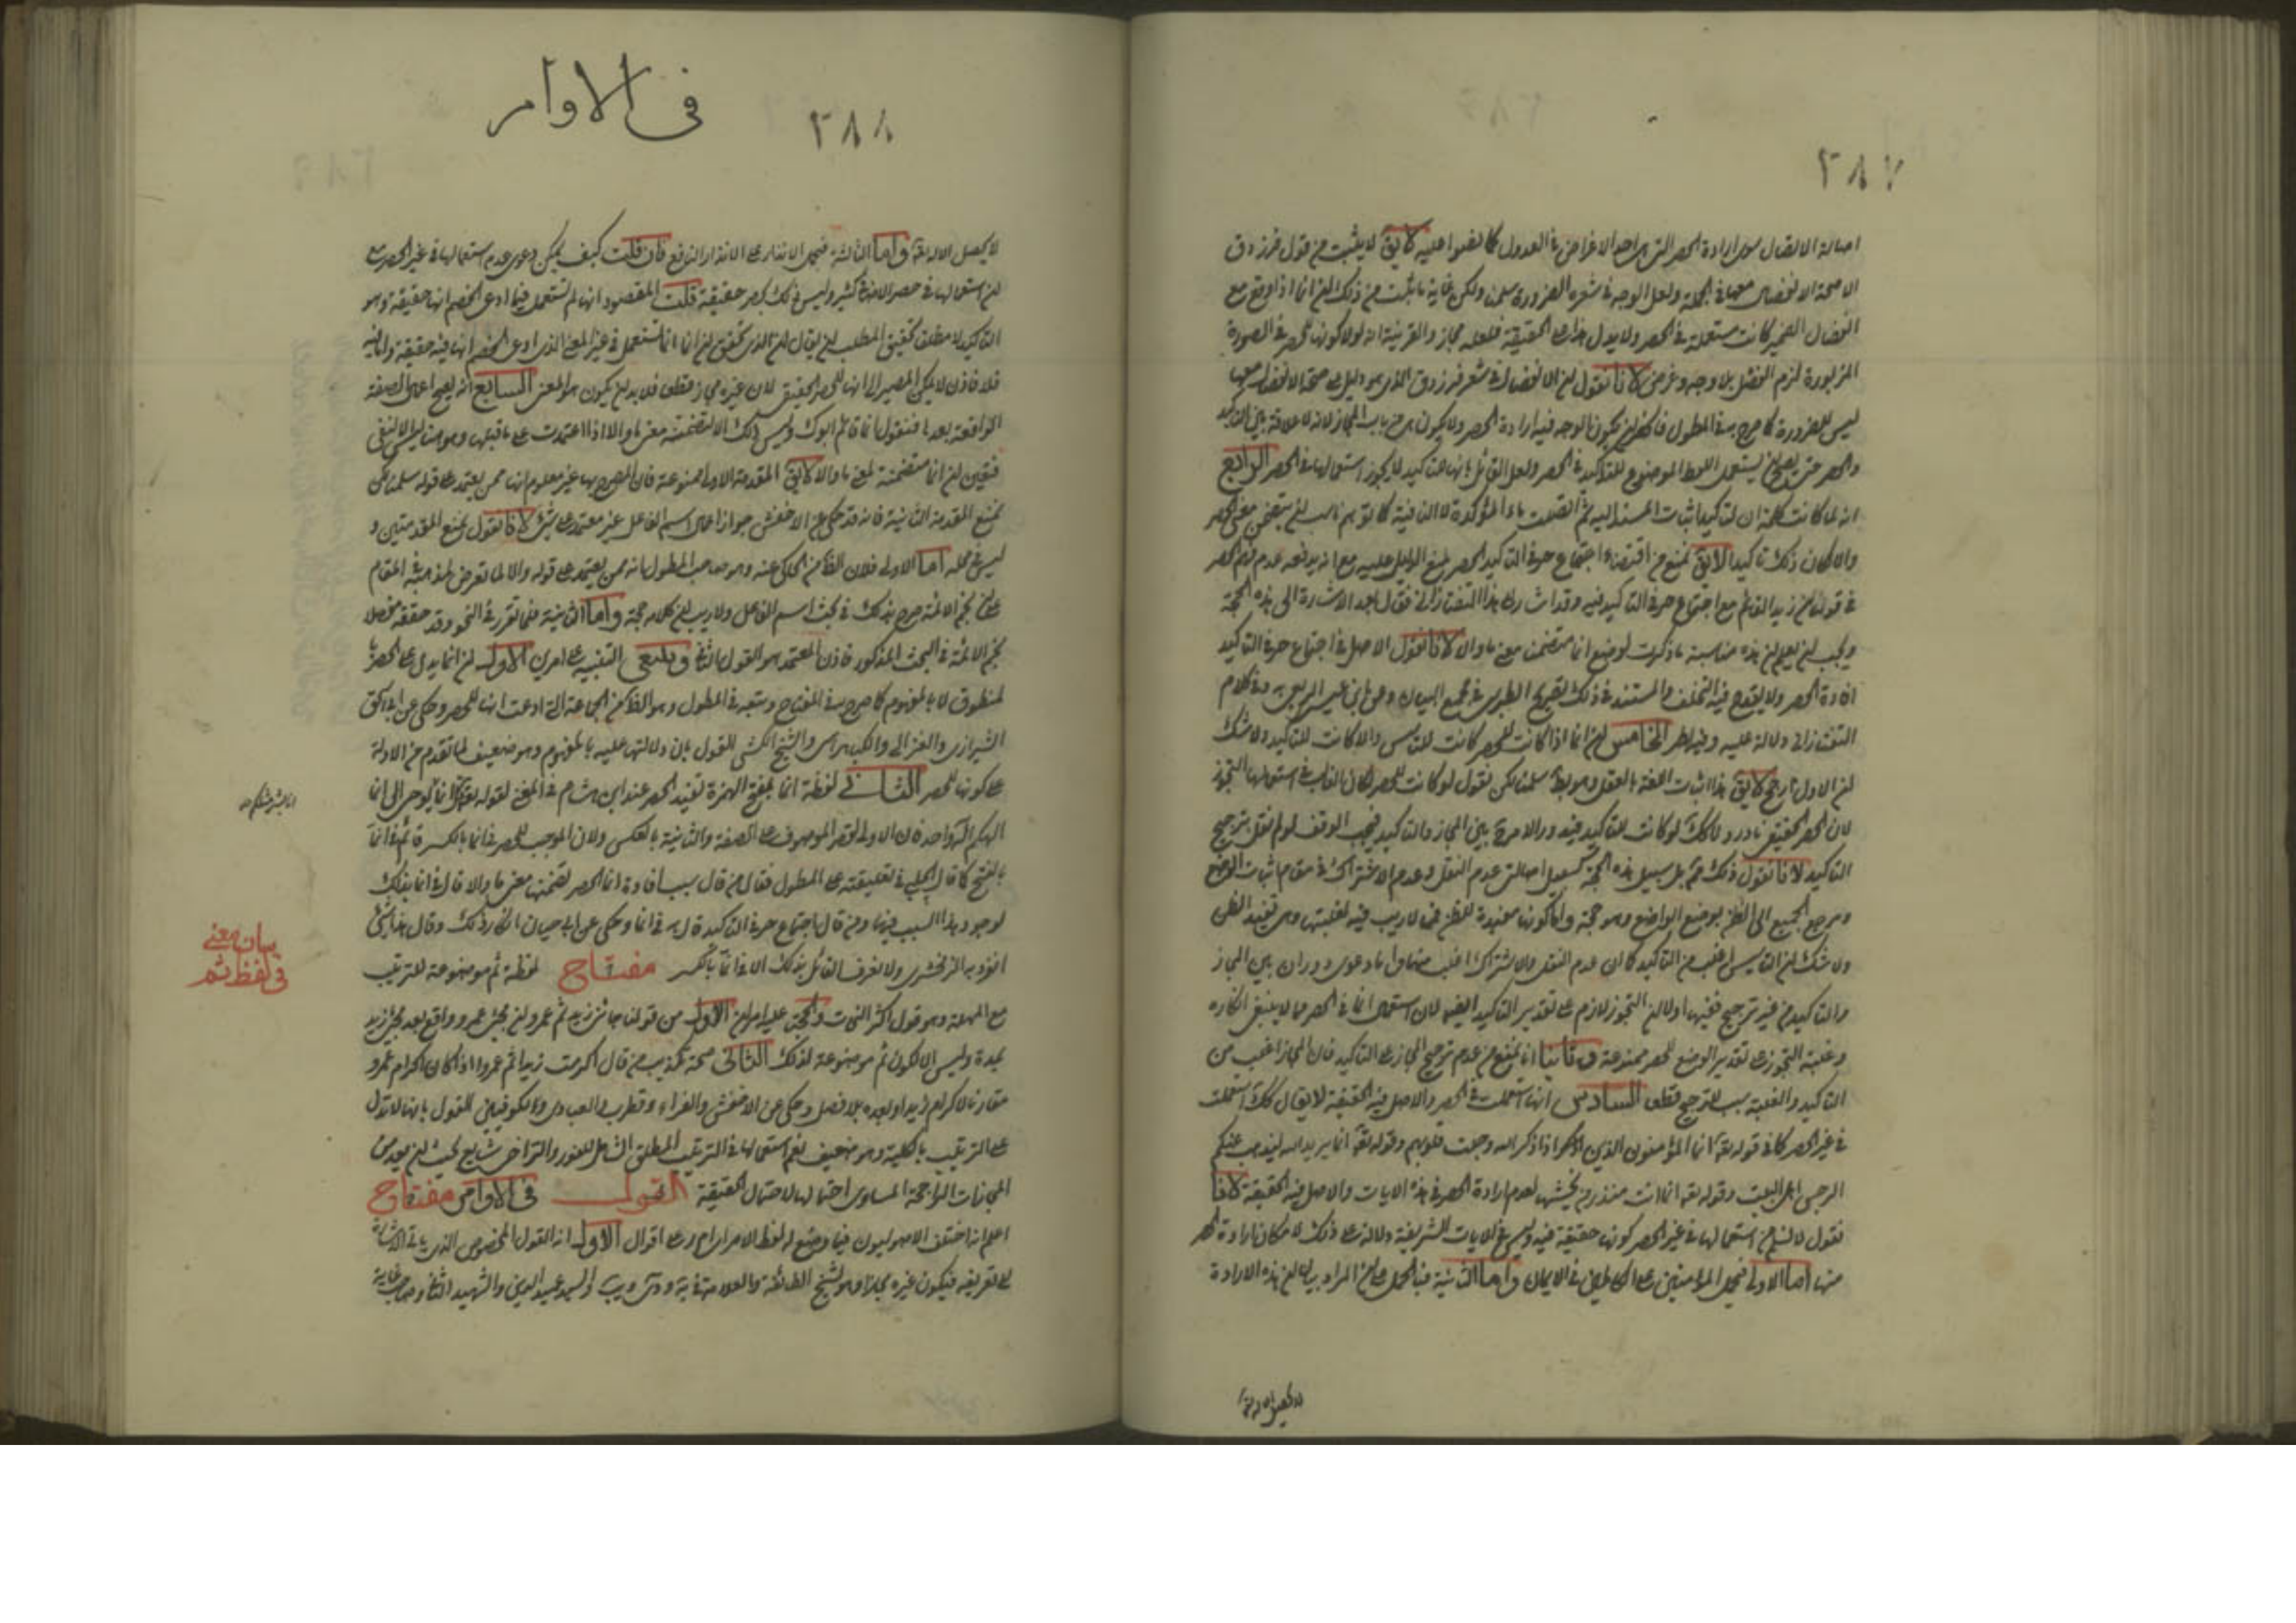 ٢٨٧
اصالة الانفصال سوى ارادة الحصر التى هى احد الاغراض فى العدول كما نصوا عليه لا يق لا يثبت من قول فرزدق
الا صحة الانفصال معها فى الجملة ولعل الوجه فى شعره الضرورة سلمنا ولكن غاية ما يثبت من ذلك ان انما اذا وقع مع
انفصال الضمير كانت مستعملة فى الحصر ولا يدل هذا على الحقيقة فلعله مجاز والقرينة انه لولا كونها للحصر فى الصورة
المزبورة لزم الفصل بلا وجه وغرض لانا نقول ان الانفصال فى شعر فرزدق الذى هو دليل على صحة الانفصال معها
ليس للضرورة كما صرح به فى المطول
والحصر حتى يصح ان يستعمل اللفظ الموضوع للتاكيد فى الحصر ولعل القائل بانها للتاكيد لا يجوز استعمالها فى الحصر الرابع
انه لما كانت كلمة ان لتاكيد اثبات المسند اليه ثم اتصلت بها ما المؤكدة لا النافية كما توهم ناسب ان يتضمن معنى الحصر
والا لكان ذلك تاكيدا لا يق نمنع من اقتضاء اجتماع حرفى التاكيد الحصر لمنع الدليل عليه مع انه يدفعه عدم فهم الحصر
فى قولنا ان زيدا لقائم مع اجتماع حرفى التاكيد فيه وقد اشار الى هذا التفتازانى فقال بعد الاشارة الى هذه الحجة
ويجب ان يعلم ان هذه مناسبة ما ذكرت لوضع انما متضمنا معنى ما والا لانا نقول الاصل فى اجتماع حرفى التاكيد
افادة الحصر ولا يقدح فيه التخلف والمستند فى ذلك تصريح الطبرسى فى مجمع البيان وعلى بن عيسى الربعى به وفى كلام
التفتازانى دلالة عليه وفيه نظر الخامس ان انما اذا كانت للحصر كانت للتاسيس والا كانت للتاكيد ولا شك
ان الاول ارجح لا يق هذا اثبات اللغة بالعقل وهو بط سلمنا لكن نقول لو كانت للحصر لكان الغالب فى استعمالها التجوز
لان الحصر الحقيقى نادر ولا كك لو كانت للتاكيد فيدور الامر بين المجاز والتاكيد فيجب الوقف لو لم نقل بترجيح
التاكيد لانا نقول ذلك غير بل سبيل هذه الحجة كسبيل اصالتى عدم النقل وعدم الاشتراك فى مقام اثبات الوضع
ومرجع الجميع الى الظن بوضع الواضع وهو حجة واما كونها مفيدة للظن فما لا ريب فيه لغلبتها وهى تفيد الظن
ولا شك ان التاسيس اغلب من التاكيد كما ان عدم النقل والاشتراك اغلب منهما واما دعوى دوران بين المجاز
والتاكيد من غير ترجيح ففيها اولا ان التجوز لازم على تقدير التاكيد ايضا لان استعمال انما فى الحصر مما لا ينبغى انكاره
وغلبة التجوز على تقدير الوضع للحصر ممنوعة وثانيا انا نمنع من عدم ترجيح المجاز على التاكيد فان المجاز اغلب من
التاكيد والغلبة سبب للترجيح قطعا السادس انها استعملت فى الحصر والاصل فيه الحقيقة لا يقال كك استعملت
فى غير الحصر كما فى قوله تعه انما المؤمنون الذين اذا ذكر الله وجلت قلوبهم وقوله تعه انما يريد الله ليذهب عنكم
الرجس اهل البيت وقوله تعه انما انت منذر من يخشيها لعدم ارادة الحصر فى هذه الايات والاصل فيه الحقيقة لانا
نقول لا نسلم استعمالها فى غير الحصر كونها حقيقة فيه وليس فى الايات الشريفة دلالة على ذلك لامكان ارادة الحصر
منها اما الاولى فبحمل المؤمنين على الكاملين فى الايمان واما الثانية فبالحمل على ان المراد بيان ان هذه الارادة
لا يحصل الا لارادة
فى الاوامر
٢٨٨
واما الثالثة فبحمل الانذار على الانذار النافع فان قلت كيف يمكن دعوى عدم استعمالها فى غير الحصر مع
ان استعمالها فى حصر الاضافى كثير وليس ذلك بحصر حقيقة قلت المقصود انها لم تستعمل فيما ادعى الخصم انها حقيقة وهو
التاكيد لا مطلقا
فلا فاذن لا يمكن المصير الى انها للحصر الحقيقى لان غيره مجاز قطعا فلا بد ان يكون هو المعنى السابع انه يصح اعمال الصفة
الواقعة بعدها فنقول انما قائم ابوك وليس ذلك الا لتضمنه معنى ما والا اذا اعتمدت على ما قبلها وهو هنا ليس الا النفى
فتعين ان انما متضمنة لمعنى ما والا لا يق المقدمة الاولى ممنوعة فان المصرح بها غير معلوم انها ممن يعتمد على قوله سلمنا لكن
نمنع المقدمة الثانية فانه قد حكى عن الاخفش جواز اعمال اسم الفاعل غير معتمد على شئ لانا نقول نمنع المقدمتين و
ليس فى محله اما الاولى فلان الظ من المحكى عنه وهو صاحب المطول انه ممن يعتمد على قوله والا لما تعرض لمذهبه فى المقام
على ان نجم الائمة صرح بذلك فى بحث اسم الفاعل ولا ريب ان كلامه حجة واما الثانية فلما تقرر فى النحو وقد حققه مفصلا
نجم الائمة فى البحث المذكور فاذن المعتمد هو القول الثانى وينبغى التنبيه على امرين الاول ان انما يدل على الحصر
بالمنطوق لا بالمفهوم كما صرح به فى المفتاح وتبعه فى المطول وهو الظ من الجماعة التى ادعت انها للحصر وحكى عن ابى اسحق
الشيرازى والغزالى والكيا هراسى والشيخ الكشى القول بان دلالتها عليه بالمفهوم وهو ضعيف لما تقدم من الادلة
على كونها للحصر الثانى لفظة انما بفتح الهمزة تفيد الحصر عند ابن هشام فى المغنى لقوله تعه قل انما يوحى الى انما
الهكم اله واحد فان الاولى لقصر الموصوف على الصفة والثانية بالعكس ولان الموجب للحصر فى انما بالكسر قائم فى انما
بالفتح كما قال الچلبى فى تعليقته على المطول فقال من قال سبب افادة انما الحصر تضمنها معنى ما والا قال فى انما بذلك
لوجود هذا السبب فيها ومن قال اجتماع حرفى التاكيد قال به فى انما وحكى عن ابى حيان انكار ذلك وقال هذا شئ
انفرد به الزمخشرى ولا نعرف القائل بذلك الا فى انما بالكسر مفتاح لفظة ثم موضوعة للترتيب
مع المهلة وهو قول اكثر النحاة والحجة عليه امران الاول من قولنا جائنى زيد ثم عمرو ان مجئ عمرو واقع بعد مجئ زيد
بمدة وليس الا لكون ثم موضوعة لذلك الثانى صحة تكذيب من قال اكرمت زيدا ثم عمروا اذا كان اكرام عمرو
مقارنا لاكرام زيد او بعده بلا فصل وحكى عن الاخفش والفراء وقطرب والعبادى والكوفيين القول بانها لا تدل
على الترتيب بالكلية وهو ضعيف نعم استعمالها فى الترتيب المطلق الشامل للفور والتراخى شايع بحيث ان يعد من
المجازات الراجحة المساوى احتمالها لاحتمال الحقيقة القول فى الاوامر مفتاح
اعلم انه اختلف الاصوليون فيما وضع له لفظ الامر اى ام ر على اقوال الاول انه القول المخصوص الذى ياتى الاشارة
الى تعريفه فيكون غيره مجازا وهو للشيخ الطائفة والعلامة فى يه ود ى ويب والسيد عميد الدين والشهيد الثانى وصاحب غاية
بيان معنى
فى لفظ ثم